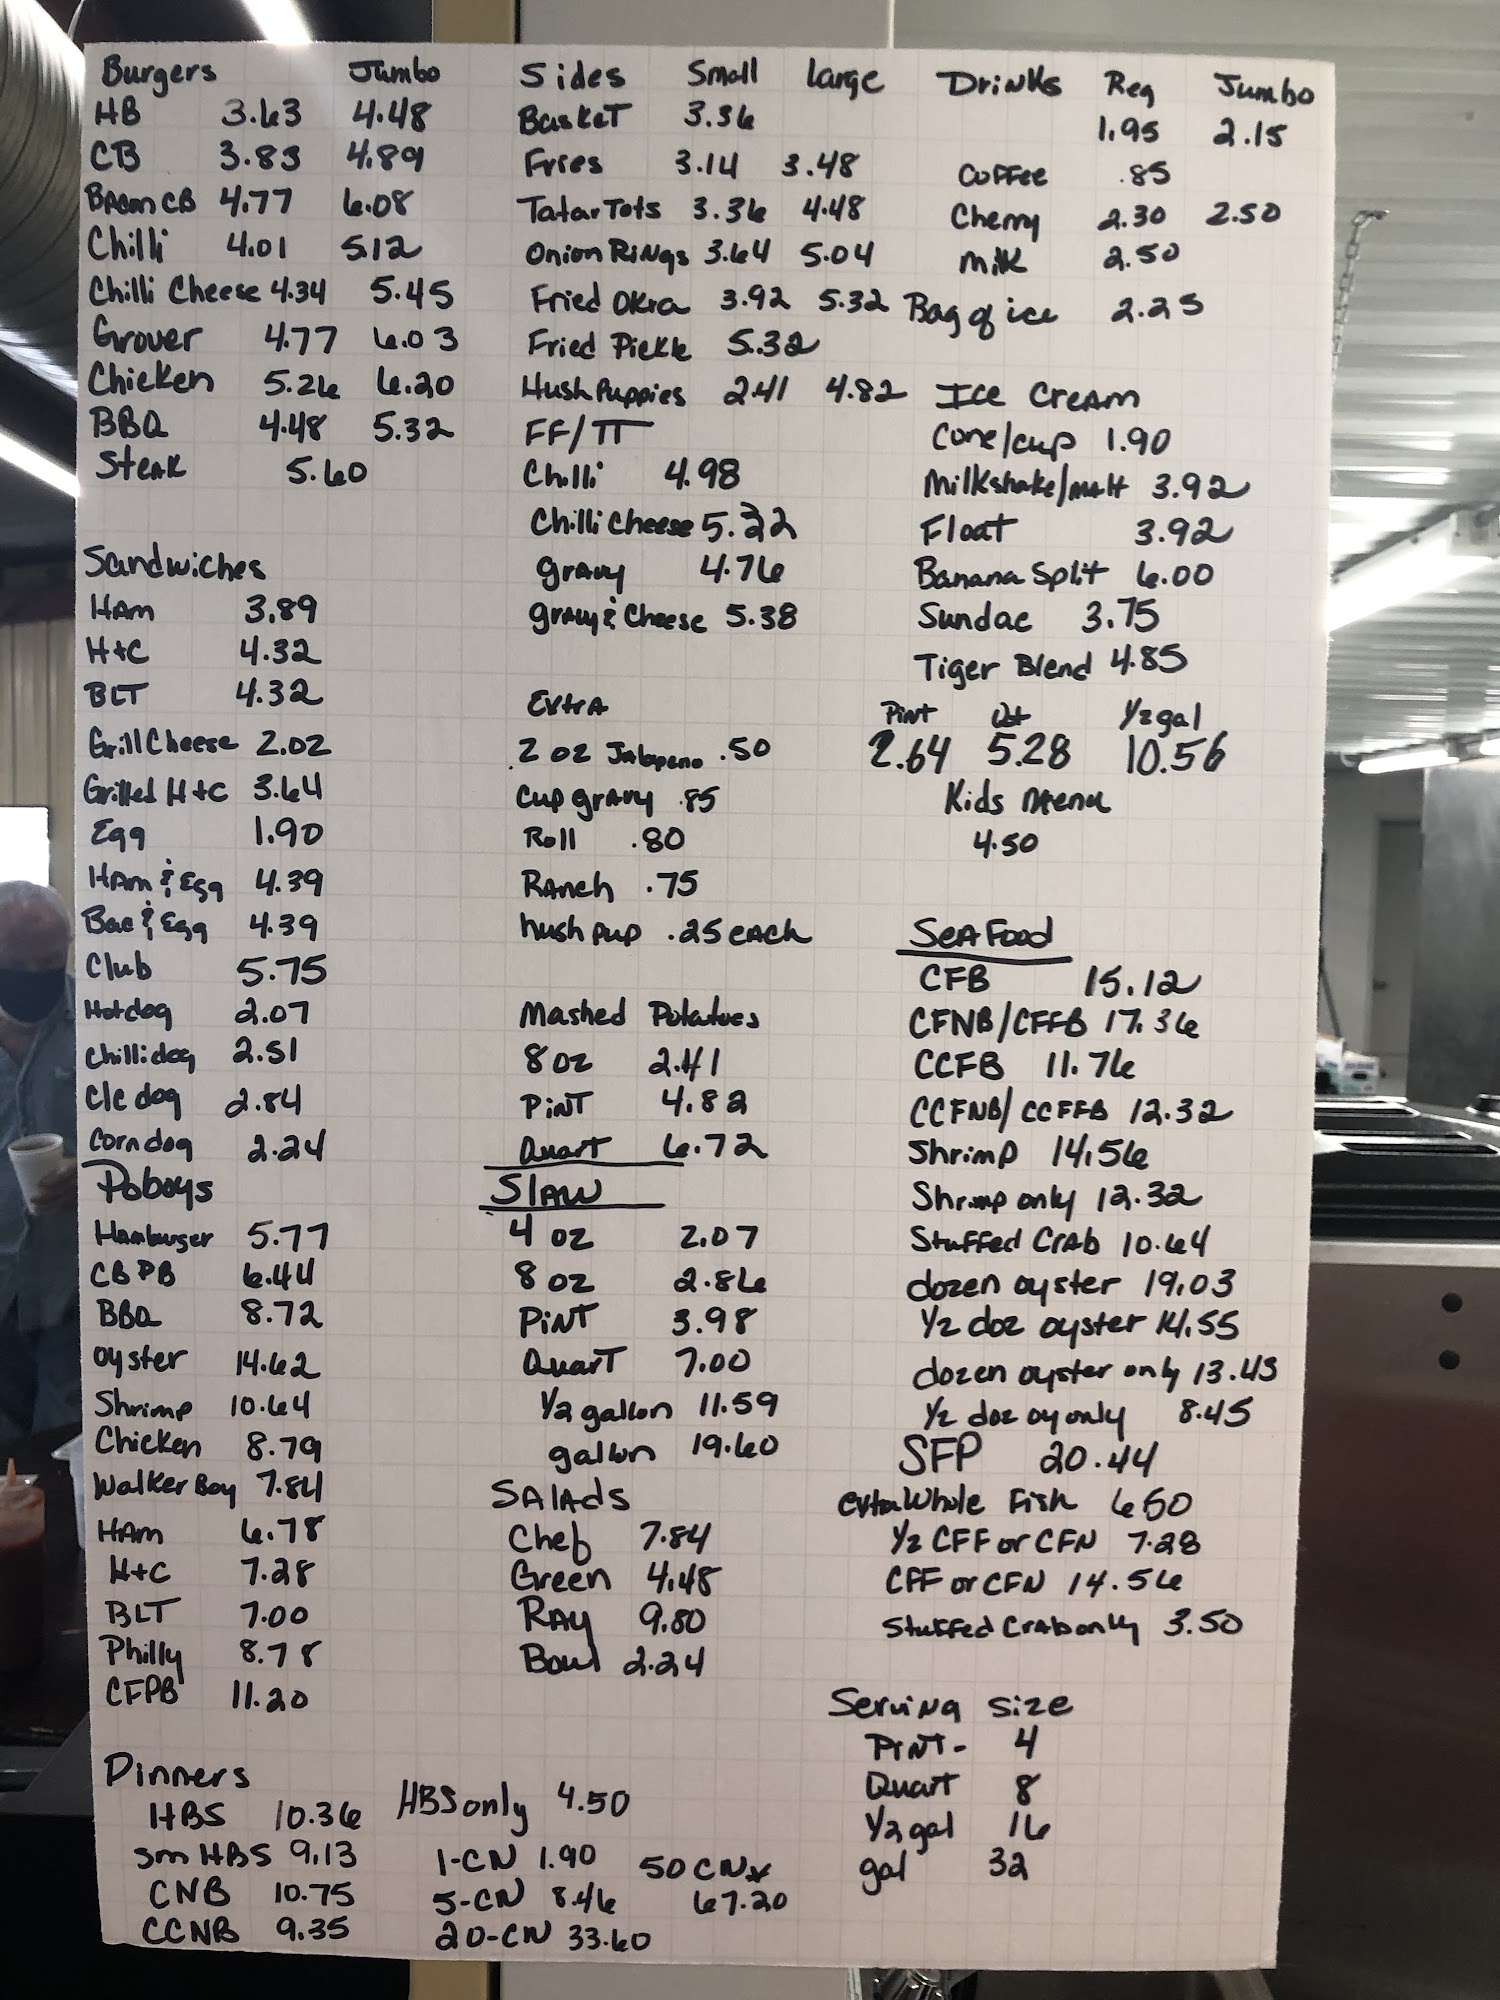 Burgers Jumbo
HB 3.63 4.48
CB 3.83 4.89
Bacon CB 4.77 6.08
Chilli 4.01 5.12
Chilli Cheese 4.34 5.45
Grover 4.77 6.03
Chicken 5.26 6.20
BBQ 4.48 5.32
Steak 5.60
Sandwiches
HAm 3.89
H+C 4.32
BLT 4.32
Grill Cheese 2.02
Grilled H+C 3.64
Egg 1.90
HAm & Egg 4.39
Bac & Egg 4.39
Club 5.75
Hotdog 2.07
Chillidog 2.51
Clc dog 2.84
Corn dog 2.24
Poboys
Hamburger 5.77
CBPB 6.44
BBQ 8.72
oyster 14.62
Shrimp 10.64
Chicken 8.79
Walker Boy 7.84
HAm 6.78
H+C 7.28
BLT 7.00
Philly 8.78
CFPB 11.20
Dinners
HBS 10.36
sm HBS 9.13
CNB 10.75
CCNB 9.35
HBS only 4.50
1-CN 1.90
5-CN 8.46
20-CN 33.60
50 CN
67.20
Sides Small large
Basket 3.36
Fries 3.14 3.48
Tatar Tots 3.36 4.48
Onion Rings 3.64 5.04
Fried Okra 3.92 5.32
Fried Pickle 5.32
Hush Puppies 2.41 4.82
FF/TT
Chilli 4.98
Chilli Cheese 5.32
gravy 4.76
gravy & Cheese 5.38
Extra
2 oz Jalapeno .50
Cup gravy .85
Roll .80
Ranch .75
hush pup .25 each
Mashed Potatoes
8 oz 2.41
Pint 4.82
Quart 6.72
Slaw
4 oz 2.07
8 oz 2.86
Pint 3.98
Quart 7.00
1/2 gallon 11.59
gallon 19.60
Salads
Chef 7.84
Green 4.48
Ray 9.80
Bowl 2.24
Drinks Reg Jumbo
1.95 2.15
Coffee .85
Cherry 2.30 2.50
milk 2.50
Bag of ice 2.25
Ice Cream
Cone/cup 1.90
Milkshake/malt 3.92
Float 3.92
Banana Split 6.00
Sundae 3.75
Tiger Blend 4.85
Pint Qt 1/2 gal
2.64 5.28 10.56
Kids Menu
4.50
Seafood
CFB 15.12
CFNB/CFFB 17.36
CCFB 11.76
CCFNB/CCFFB 12.32
Shrimp 14.56
Shrimp only 12.32
Stuffed Crab 10.64
dozen oyster 19.03
1/2 doz oyster 14.55
dozen oyster only 13.43
1/2 doz oy only 8.45
SFP 20.44
extra Whole Fish 6.50
1/2 CFF or CFN 7.28
CFF or CFN 14.56
Stuffed Crab only 3.50
Serving Size
Pint - 4
Quart 8
1/2 gal 16
gal 32